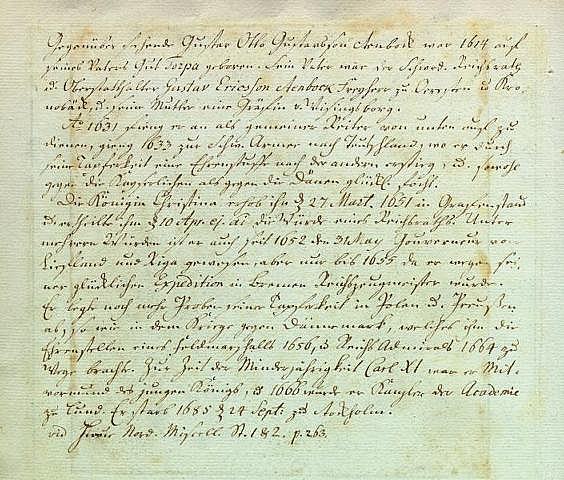 Gegenüber stehende Gustav Otto Gustavsson Stenbock war 1614 auf
seines Vaters Gut Torpa geboren. Sein Vater war der Schwed. Reichsrath
u. Oberstatthalter Gustav Ericsson Stenbock Freyherr zu Oersten u. Kro-
nobäck u. seine Mutter eine Gräfin v. Visingsborg.
Ao 1631 fieng er an als gemeiner Reiter von unten auf zu
dienen, gieng 1633 zur Schw. Armee nach Teutschland, wo er durch
seine Tapferkeit eine Ehrenstufe nach der andern erstieg, u. sowohl
gegen die Kayserlichen als gegen die Dänen glückl. focht.
Die Königin Christina erhob ihn d 27. Mart. 1651 in Grafenstand
u. ertheilte ihm d 10 Apr. ej. ai die Würde eines Reichsraths. Unter
mehrern Würden ist er auch seit 1652 den 31 May Gouverneur von
Liefland und Riga gewesen, aber nur bis 1655 da er wegen sei-
ner glücklichen Expedition in Bremen Reichszeugmeister wurde.
Er legte noch mehr Proben seiner Tapferkeit in Polen u. Preußen
ab, so wie in dem Kriege gegen Dännemark, welches ihm die
Ehrenstellen eines Feldmarschalls 1656, u. Reichs Admirals 1664 zu
Wege brachte. Zur Zeit der Minderjährigkeit Carl XI war er Mit-
vormund des jungen Königs, u. 1666 wurde er Kanzler der Academie
zu Lund. Er starb 1685 d 24 Sept: zu Stokholm.
vid Nord. Miscell. St. 1 & 2. p. 263.